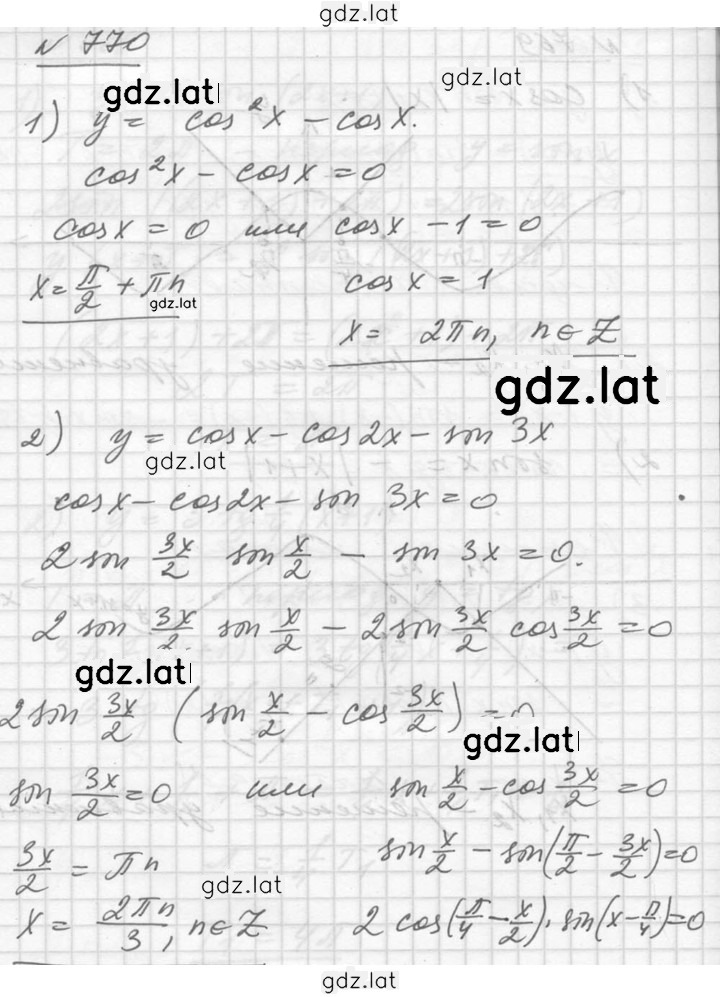 gdz.lat
№ 770
gdz.lat gdz.lat
1) y = cos²x − cosx.
cos²x − cosx = 0
cosx = 0 или cosx − 1 = 0
x = π/2 + πn cosx = 1
gdz.lat
x = 2πn, n ∈ Z
gdz.lat
2) y = cosx − cos2x − sin 3x
gdz.lat
cosx − cos2x − sin 3x = 0.
2 sin 3x/2 sin x/2 − sin 3x = 0.
2 sin 3x/2 sin x/2 − 2 sin 3x/2 cos 3x/2 = 0
gdz.lat
2 sin 3x/2 (sin x/2 − cos 3x/2) = 0
gdz.lat
sin 3x/2 = 0 или sin x/2 − cos 3x/2 = 0
3x/2 = πn sin x/2 − sin(π/2 − 3x/2) = 0
gdz.lat
x = 2πn/3, n ∈ Z 2 cos(π/4 − x/2) · sin(x − π/4) = 0
gdz.lat